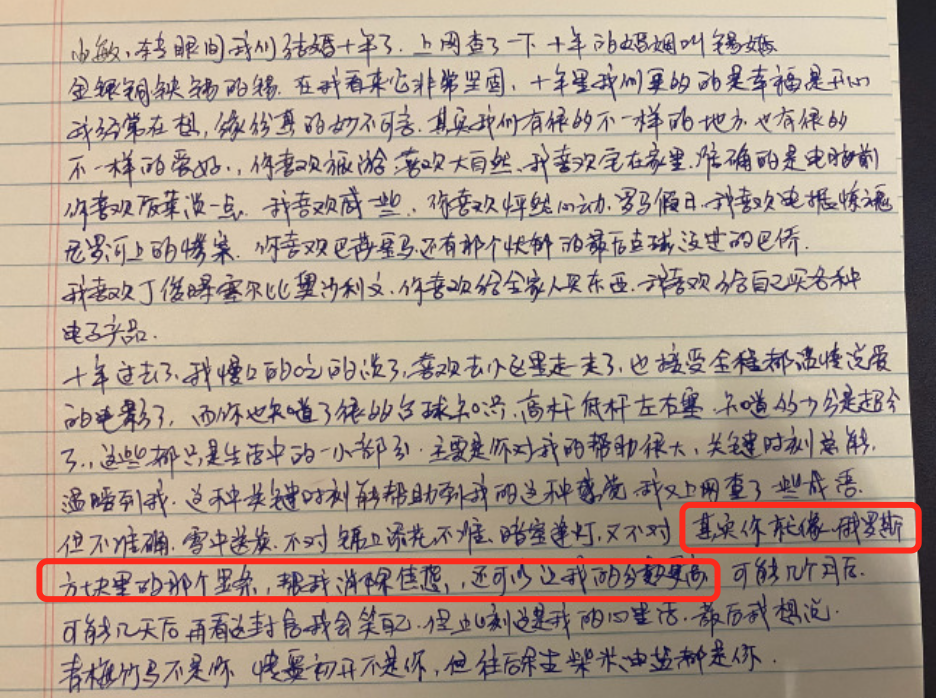 由敏,转眼间我们结婚十年了.上网查了一下十年的婚姻叫锡婚
金银铜铁锡的锡.在我看来它非常坚固,十年里我们要的的是幸福是开心
我经常在想,缘份真的妙不可言.其实我们有很多不一样的地方.也有很多
不一样的爱好.,你喜欢旅游喜欢大自然.我喜欢宅在家里.准确的是电脑前
你喜欢饭菜淡一点.我喜欢咸一些.你喜欢怦然心动.罗马假日.我喜欢电锯惊魂
尼罗河上的惨案.你喜欢巴蒂 罗马.还有那个忧郁的最后点球没进的巴乔.
我喜欢丁俊晖塞尔比奥沙利文.你喜欢给全家人买东西.我喜欢给自己买各种
电子产品.
十年过去了.我慢慢的吃的淡了.喜欢去小区里走一走了.也接受全程都温情浪漫
的电影了,而你也知道了很多台球知识.高杆低杆左右塞.知道多少分是超分
了.,这些都只是生活中的一小部分.主要是你对我的帮助很大,关键时刻总能.
温暖到我.这种关键时刻能帮助到我的这种感觉 我又上网查了一些成语.
但不准确.雪中送炭.不对 锦上添花不准.暗室逢灯.又不对 其实你就像俄罗斯
方块里的那个竖条,帮我消除焦虑,还可以让我的分数更高 可能几个月后.
可能几天后再看这封信我会笑自己.但此刻这是我的心里话.最后我想说.
青梅竹马不是你 情窦初开不是你,但往后余生柴米油盐都是你.